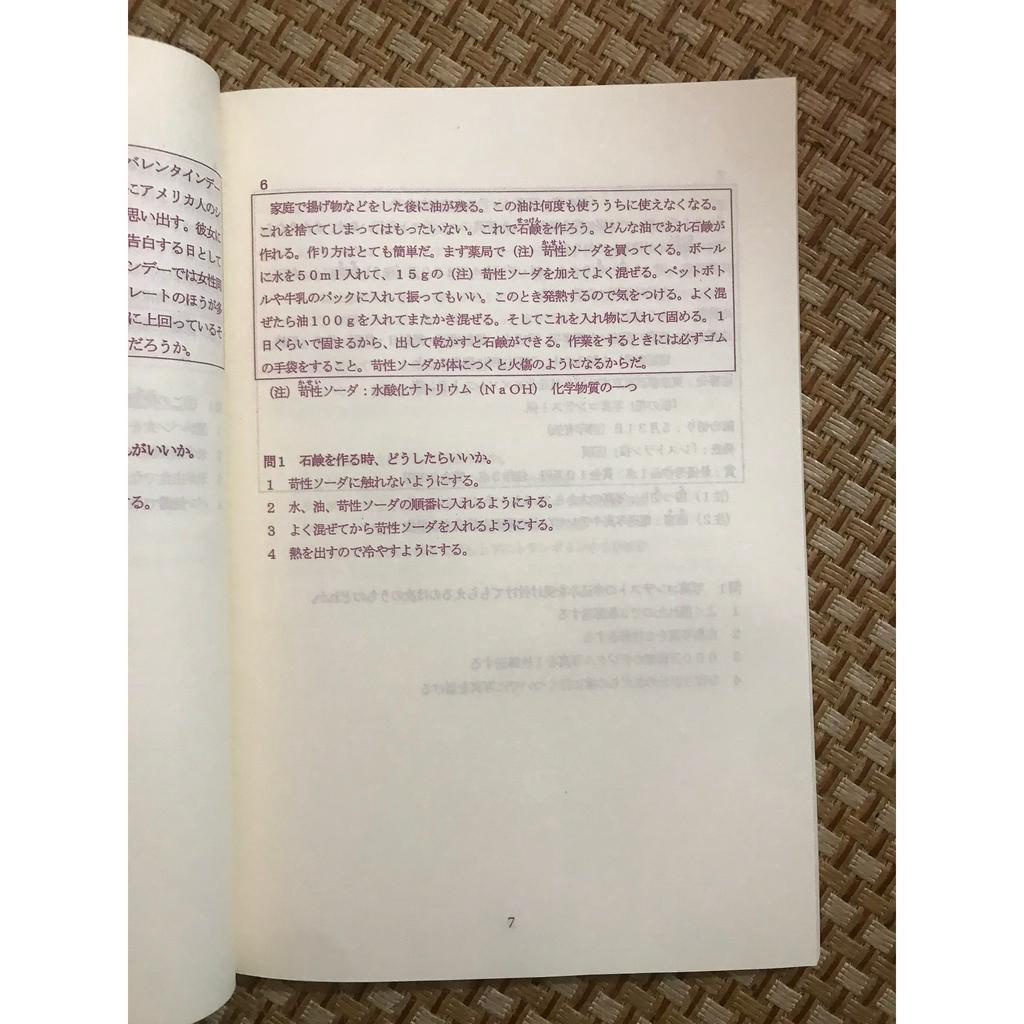 バレンタインデー
にアメリカ人のシ
思い出す。彼女に
告白する日として
ンデーでは女性同
レートのほうが多
に上回っているそ
だろうか。
がいいか。
る。
6
家庭で揚げ物などをした後に油が残る。この油は何度も使ううちに使えなくなる。
これを捨ててしまってはもったいない。これで石鹸を作ろう。どんな油であれ石鹸が
作れる。作り方はとても簡単だ。まず薬局で（注）苛性ソーダを買ってくる。ボール
に水を50ml入れて、15gの（注）苛性ソーダを加えてよく混ぜる。ペットボト
ルや牛乳のパックに入れて振ってもいい。このとき発熱するので気をつける。よく混
ぜたら油100gを入れてまたかき混ぜる。そしてこれを入れ物に入れて固める。1
日ぐらいで固まるから、出して乾かすと石鹸ができる。作業をするときには必ずゴム
の手袋をすること。苛性ソーダが体につくと火傷のようになるからだ。
（注）苛性ソーダ：水酸化ナトリウム（NaOH）　化学物質の一つ
問1　石鹸を作る時、どうしたらいいか。
1　苛性ソーダに触れないようにする。
2　水、油、苛性ソーダの順番に入れるようにする。
3　よく混ぜてから苛性ソーダを入れるようにする。
4　熱を出すので冷やすようにする。
7